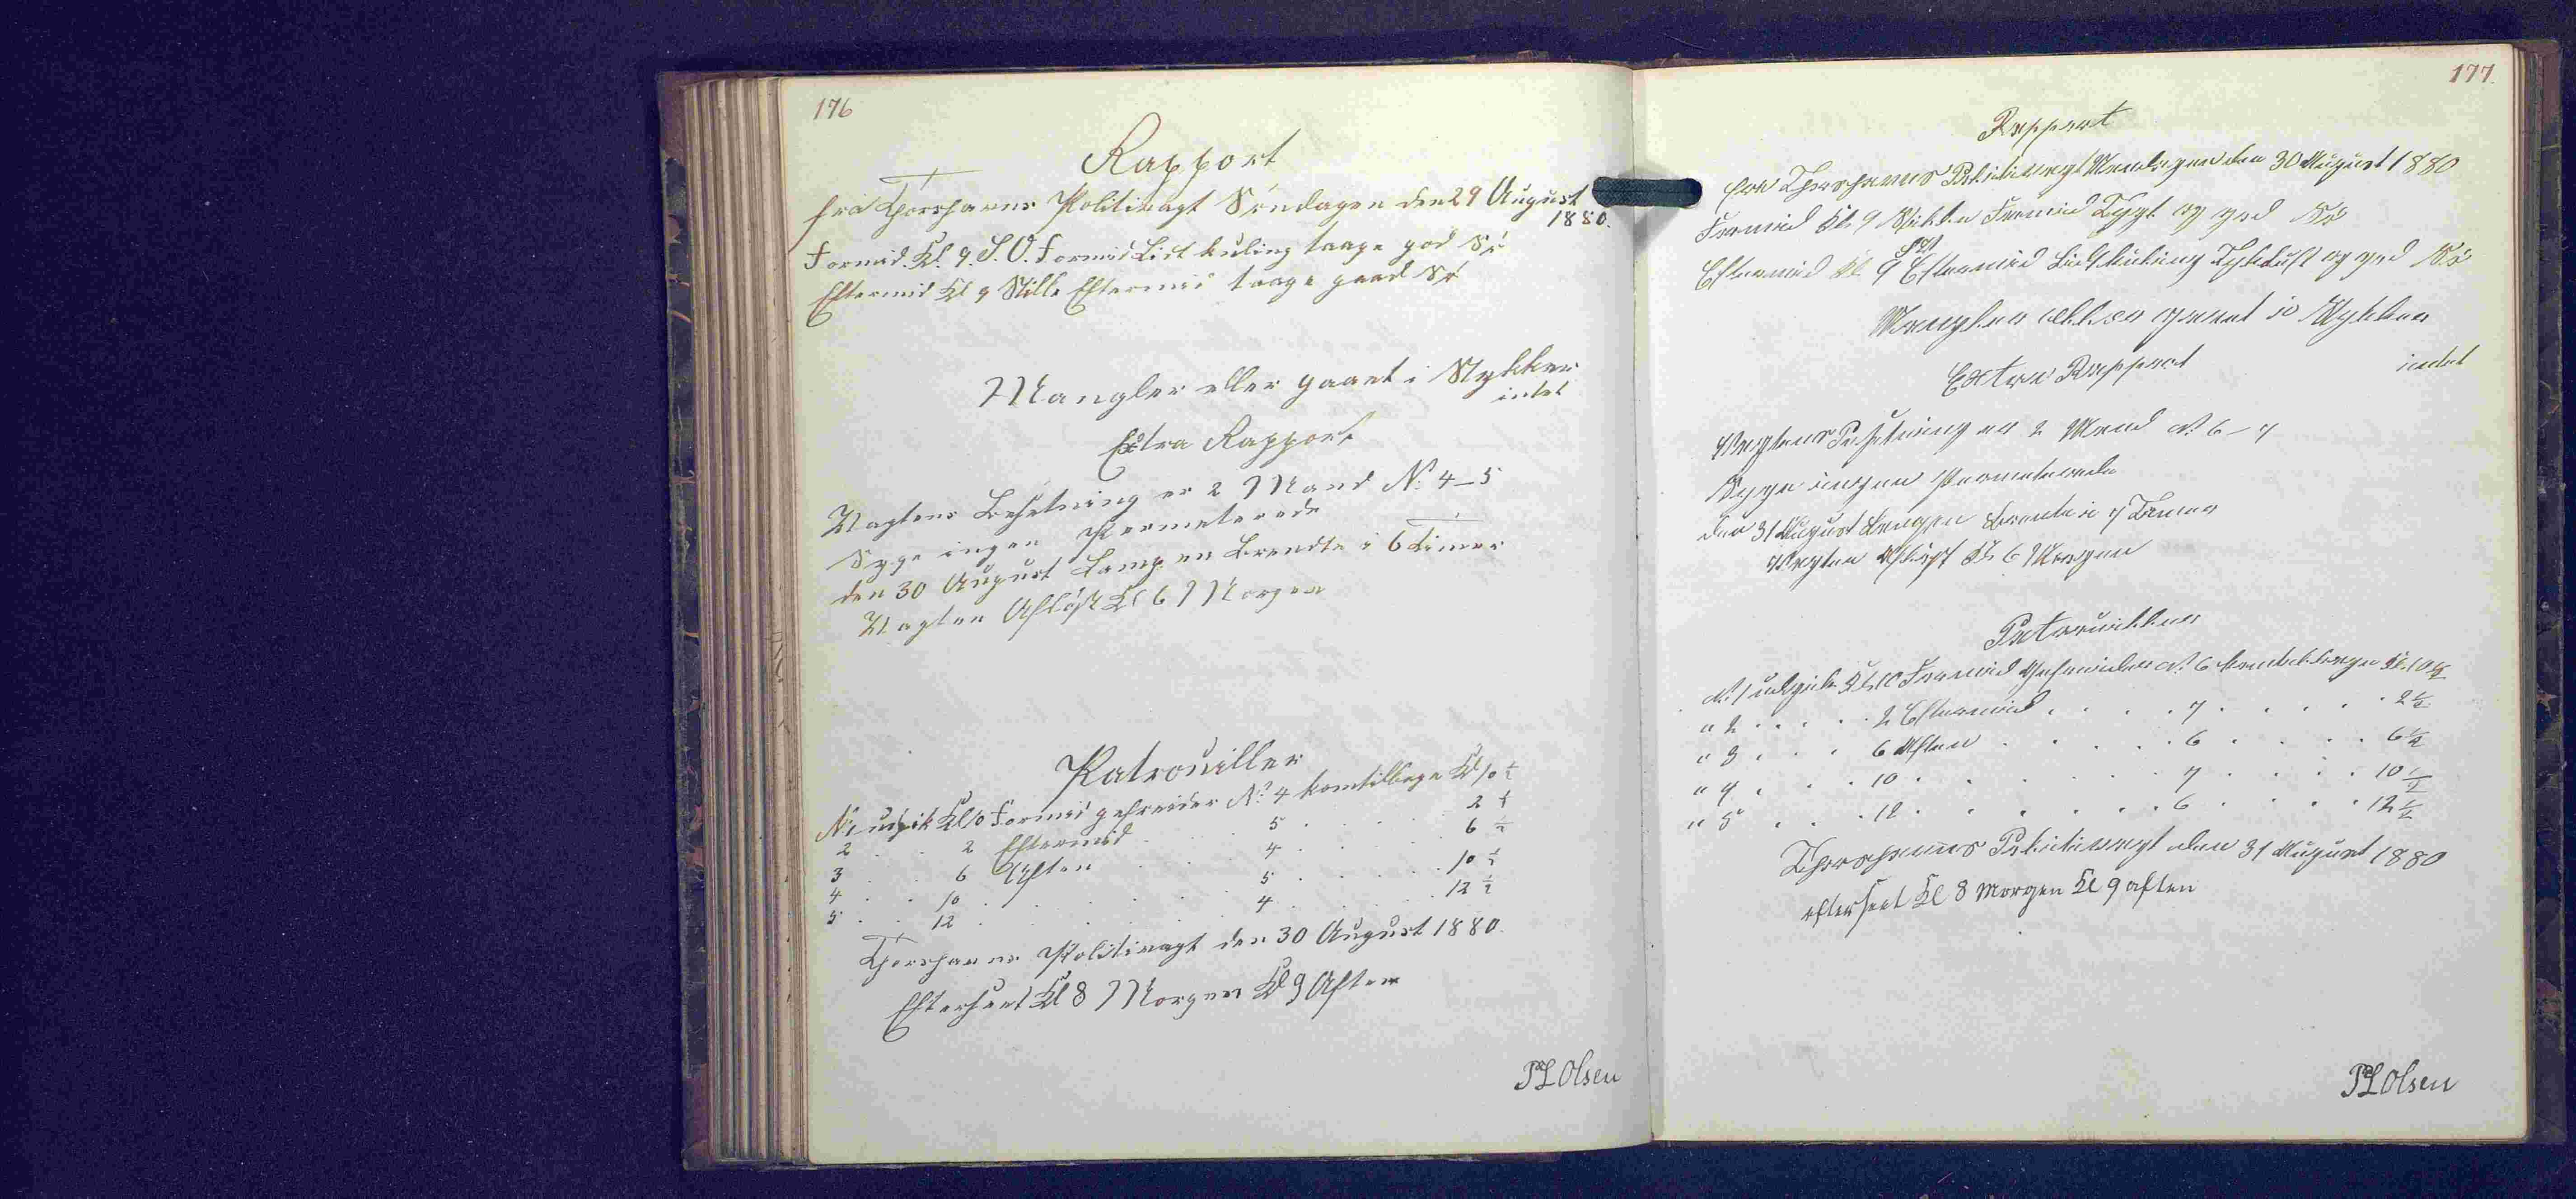 176
Rapport
fra Thorshavns Politivagt Söndagen den 29 August
1880.
Formid. Kl. 9. S.O. Formid List kuling taage god Sö
Eftermid Kl 9 Stille Eftermid taage good Sö
Mangler eller gaaet i Stykker
intet
Extra Rapport
Vagtens Besetning er 2 Mand No 4_5
Syge ingen Permeterede
den 30 August Lampen Brendte i 6 Timer
Vagten Aflöst Kl 6 Morgen
Patrouiller
No 1 udgik Kl 10 Formid gefreider No 4 kom tilbage Kl 10 ½
2 . . 2 Eftermid . . 5 . . . 2 ½
3 . . 6 Aften . . 4 . . . 6 ½
4 . . 10 . . . . 5 . . . 10 ½
5 . . 12 . . . . 4 . . . 12 ½
Thorshavns Politivagt den 30 August 1880.
Efterseet Kl 8 Morgen Kl 9 Aften
PL Olsen
177.
Rapport
fra Thorshavns Politivagt Mandagen den 30 August 1880
Formid Kl. 9 Stille Formid Tygt og god Sö
Eftermid Kl. 9 Eftermid List kuling Tykluft og god Sö
Mangler eller gaaet i Stykker
Extra Rapport
intet
Vagtens Besetning er 2 Mand No 6_7
Syge ingen Permeterede
den 31 August Lampen Brente i 7 Timer
Vagten Aflöst Kl. 6 Morgen
Patrouiller
No 1 udgik Kl. 10 Formid Gefreider No 6 kom tilbage Kl. 10 ½
" 2 . . . . . 2 Eftermid . . . . 7 . . . . . 2 ½
" 3 . . . 6 Aften . . . . . 6 . . . . 6 ½
" 4 . . . 10 . . . . . . 7 . . . . 10 ½
" 5 . . . 12 . . . . . . 6 . . . . 12 ½
Thorshavns Politivagt den 31 August 1880
efterseet Kl 8 Morgen Kl 9 aften
PL Olsen